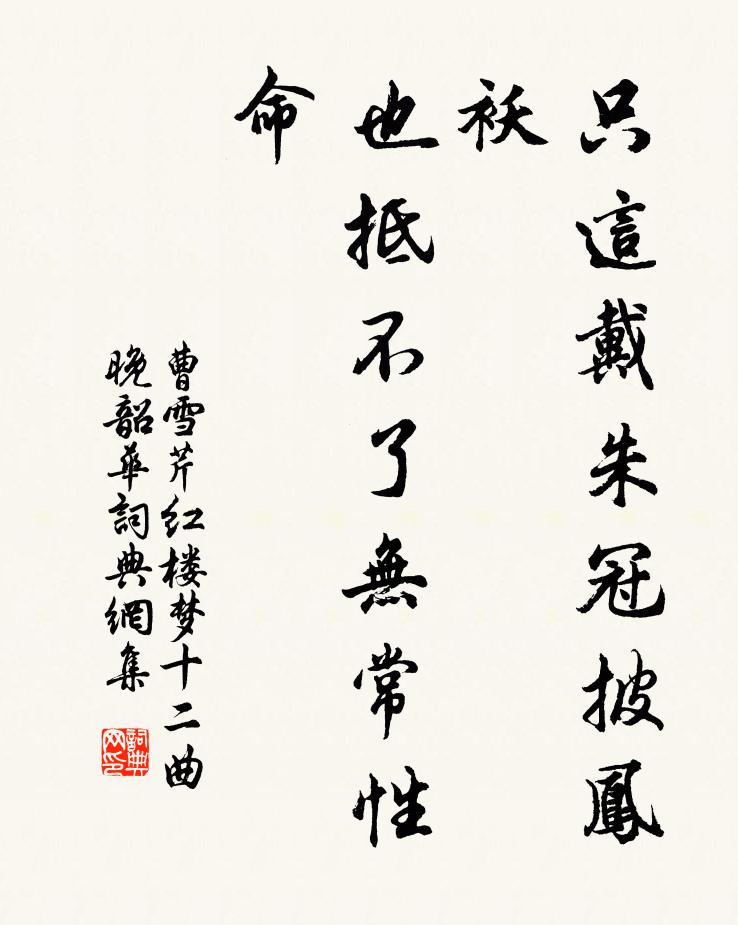 只這戴朱冠披鳳
袄
也抵不了無常性
命
曹雪芹红楼梦十二曲
晚韶華詞典網集
詞典
网印